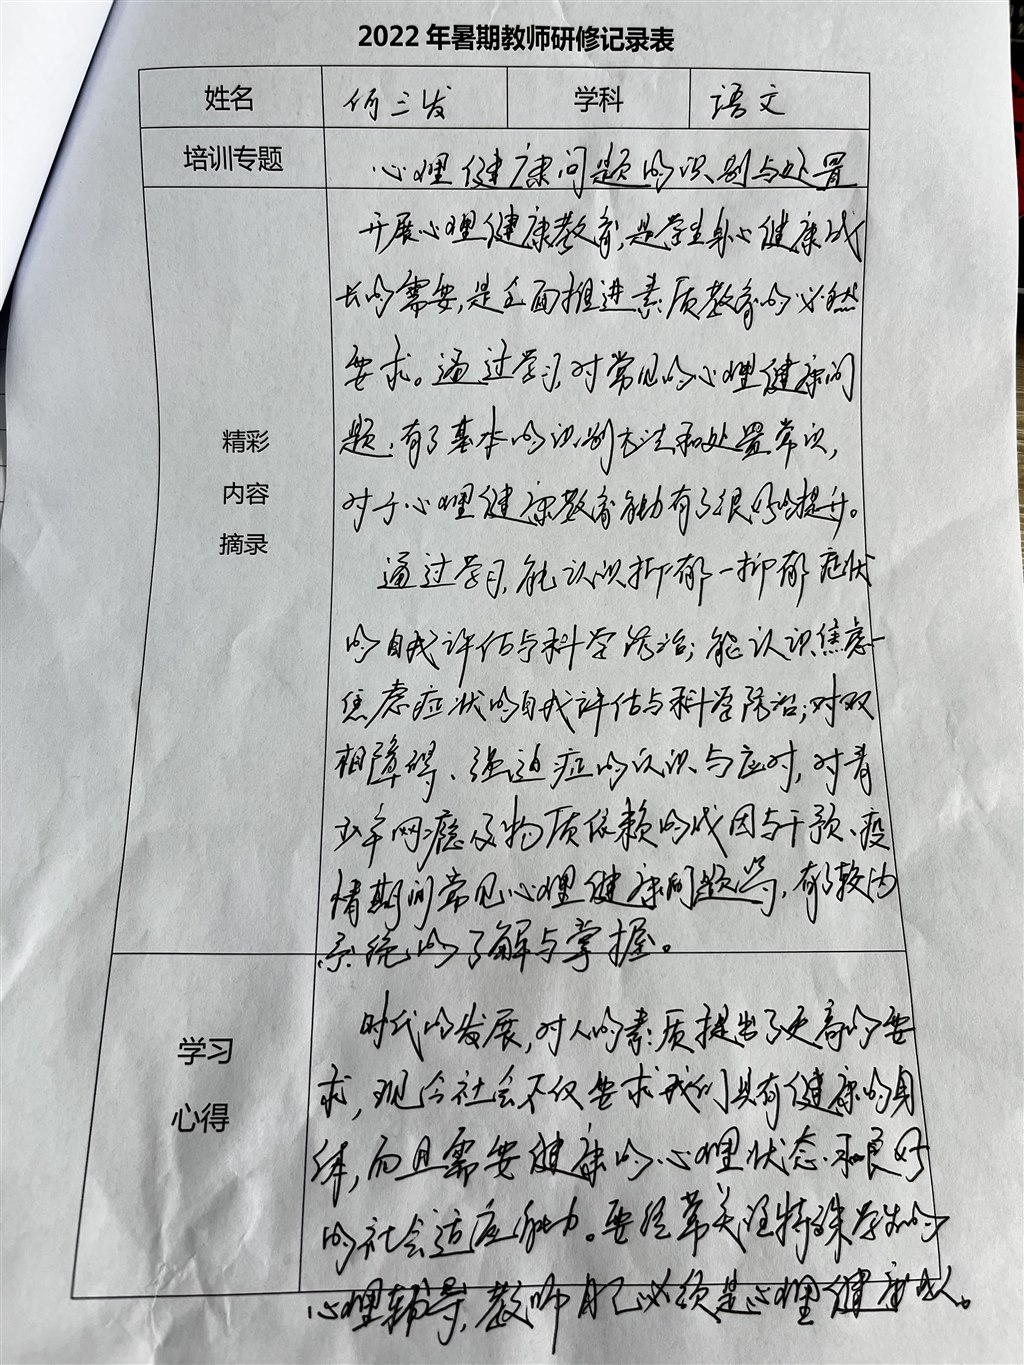 2022 年暑期教师研修记录表
姓名 何三发 学科 语文
培训专题 心理健康问题的识别与处置
开展心理健康教育,是学生身心健康成
长的需要,是全面推进素质教育的必然
要求。通过学习,对常见的心理健康问
题,有了基本的识别方法和处置常识,
对于心理健康教育能力有了很好的提升。
精彩
内容
摘录
通过学习,能认识抑郁一抑郁症状
的自我评估与科学防治;能认识焦虑一
焦虑症状的自我评估与科学防治;对双
相障碍、强迫症的认识与应对,对青
少年网瘾及物质依赖的成因与干预、疫
情期间常见心理健康问题等,有了较为
系统的了解与掌握。
学习
心得
时代的发展,对人的素质提出了更高的要
求,现今社会不仅要求我们具有健康的身
体,而且需要健康的心理状态和良好
的社会适应能力。要经常关注特殊学生的
心理辅导,教师自己必须是心理健康的人。